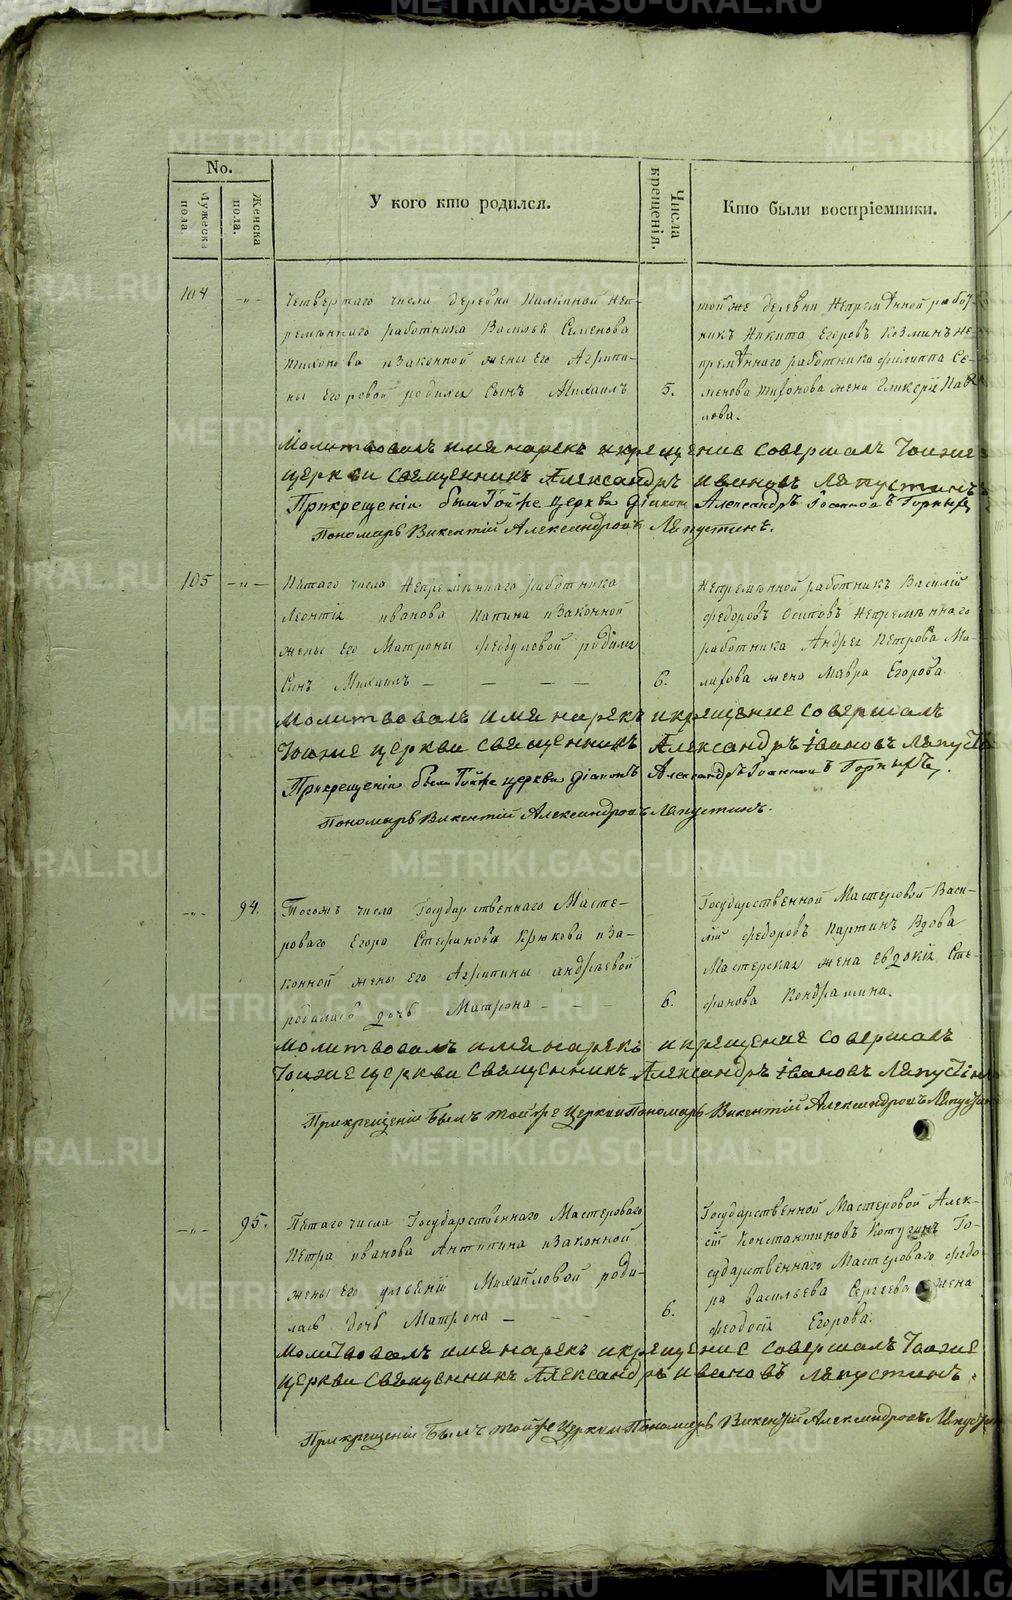 METRIKI.GASO-URAL.RU
No.
Мужеска пола
Женска пола.
У кого кто родился.
Числа крещенія.
Кто были воспріемники.
104
Четвертаго числа деревни Палкиной Неп-
ремѣннаго работника Василья Семенова
Тихонова изаконной жены Его Агрипи-
ны Егоровой родился Сынъ Михаилъ
5.
той же деревни Непремѣнной работ-
никъ Никита Егоровъ Козминъ Не-
премѣннаго работника Филиппа Се-
менова Тихонова жена Гликерія Пав-
лова.
Молитвовалъ имя нарекъ и крещение совершалъ Тоиже
церкви священникъ Александръ Ивановъ Ляпустинъ
Прикрещеніи былъ Тойже церкви діаконъ Александръ Іоанновъ Горныхъ,
Пономарь Викентій Александровъ Ляпустинъ.
105
Пятаго числа Непремѣннаго работника
Леонтія иванова Папина изаконной
жены его Матроны Федуловой родился
Сынъ Михаилъ
6.
Непремѣнной работникъ Василій
Федоровъ Осиповъ Непремѣннаго
работника Андрея Петрова Ма-
лахова жена Мавра Егорова.
Молитвовалъ имя нарекъ и крещение совершалъ
Тоиже церкви священникъ Александръ івановъ Ляпусті
Прикрещеніи былъ Тойже церкви діаконъ Александръ Іоанновъ Горныхъ,
Пономарь Викентій Александровъ Ляпустинъ.
94.
Тогожъ числа Государственнаго Масте-
роваго Егора Стефанова Крюкова иза-
конной жены его Агрипины андреевой
родилась дочь Матрона
6.
Государственной Мастеровой Васи-
лій Федоровъ Партинъ Вдова
Мастерская жена евдокія Сте-
фанова Кондрашина.
Молитвовалъ имя нарекъ и крещение совершалъ
Тоиже церкви священникъ Александръ івановъ Ляпустін
Прикрещеніи Былъ тойже Церкви Пономарь Викентій Александровъ Ляпустин
95.
Пятаго числа Государственнаго Мастероваго
Петра иванова Антипина изаконной
жены Его ульянии Михайловой роди-
лась дочь Матрона
6.
Государственной Мастеровой Алек-
сій Константиновъ Котугинъ Го-
сударственнаго Мастероваго Федо-
ра васильева Сергеева жена
Феодосія Егорова.
Молитвовалъ имя нарекъ и крещение совершалъ Тоиже
церкви священникъ Александръ Ивановъ Ляпустинъ.
Прикрещеніи Былъ тойже Церкви Пономарь Викентій Александровъ Ляпустин